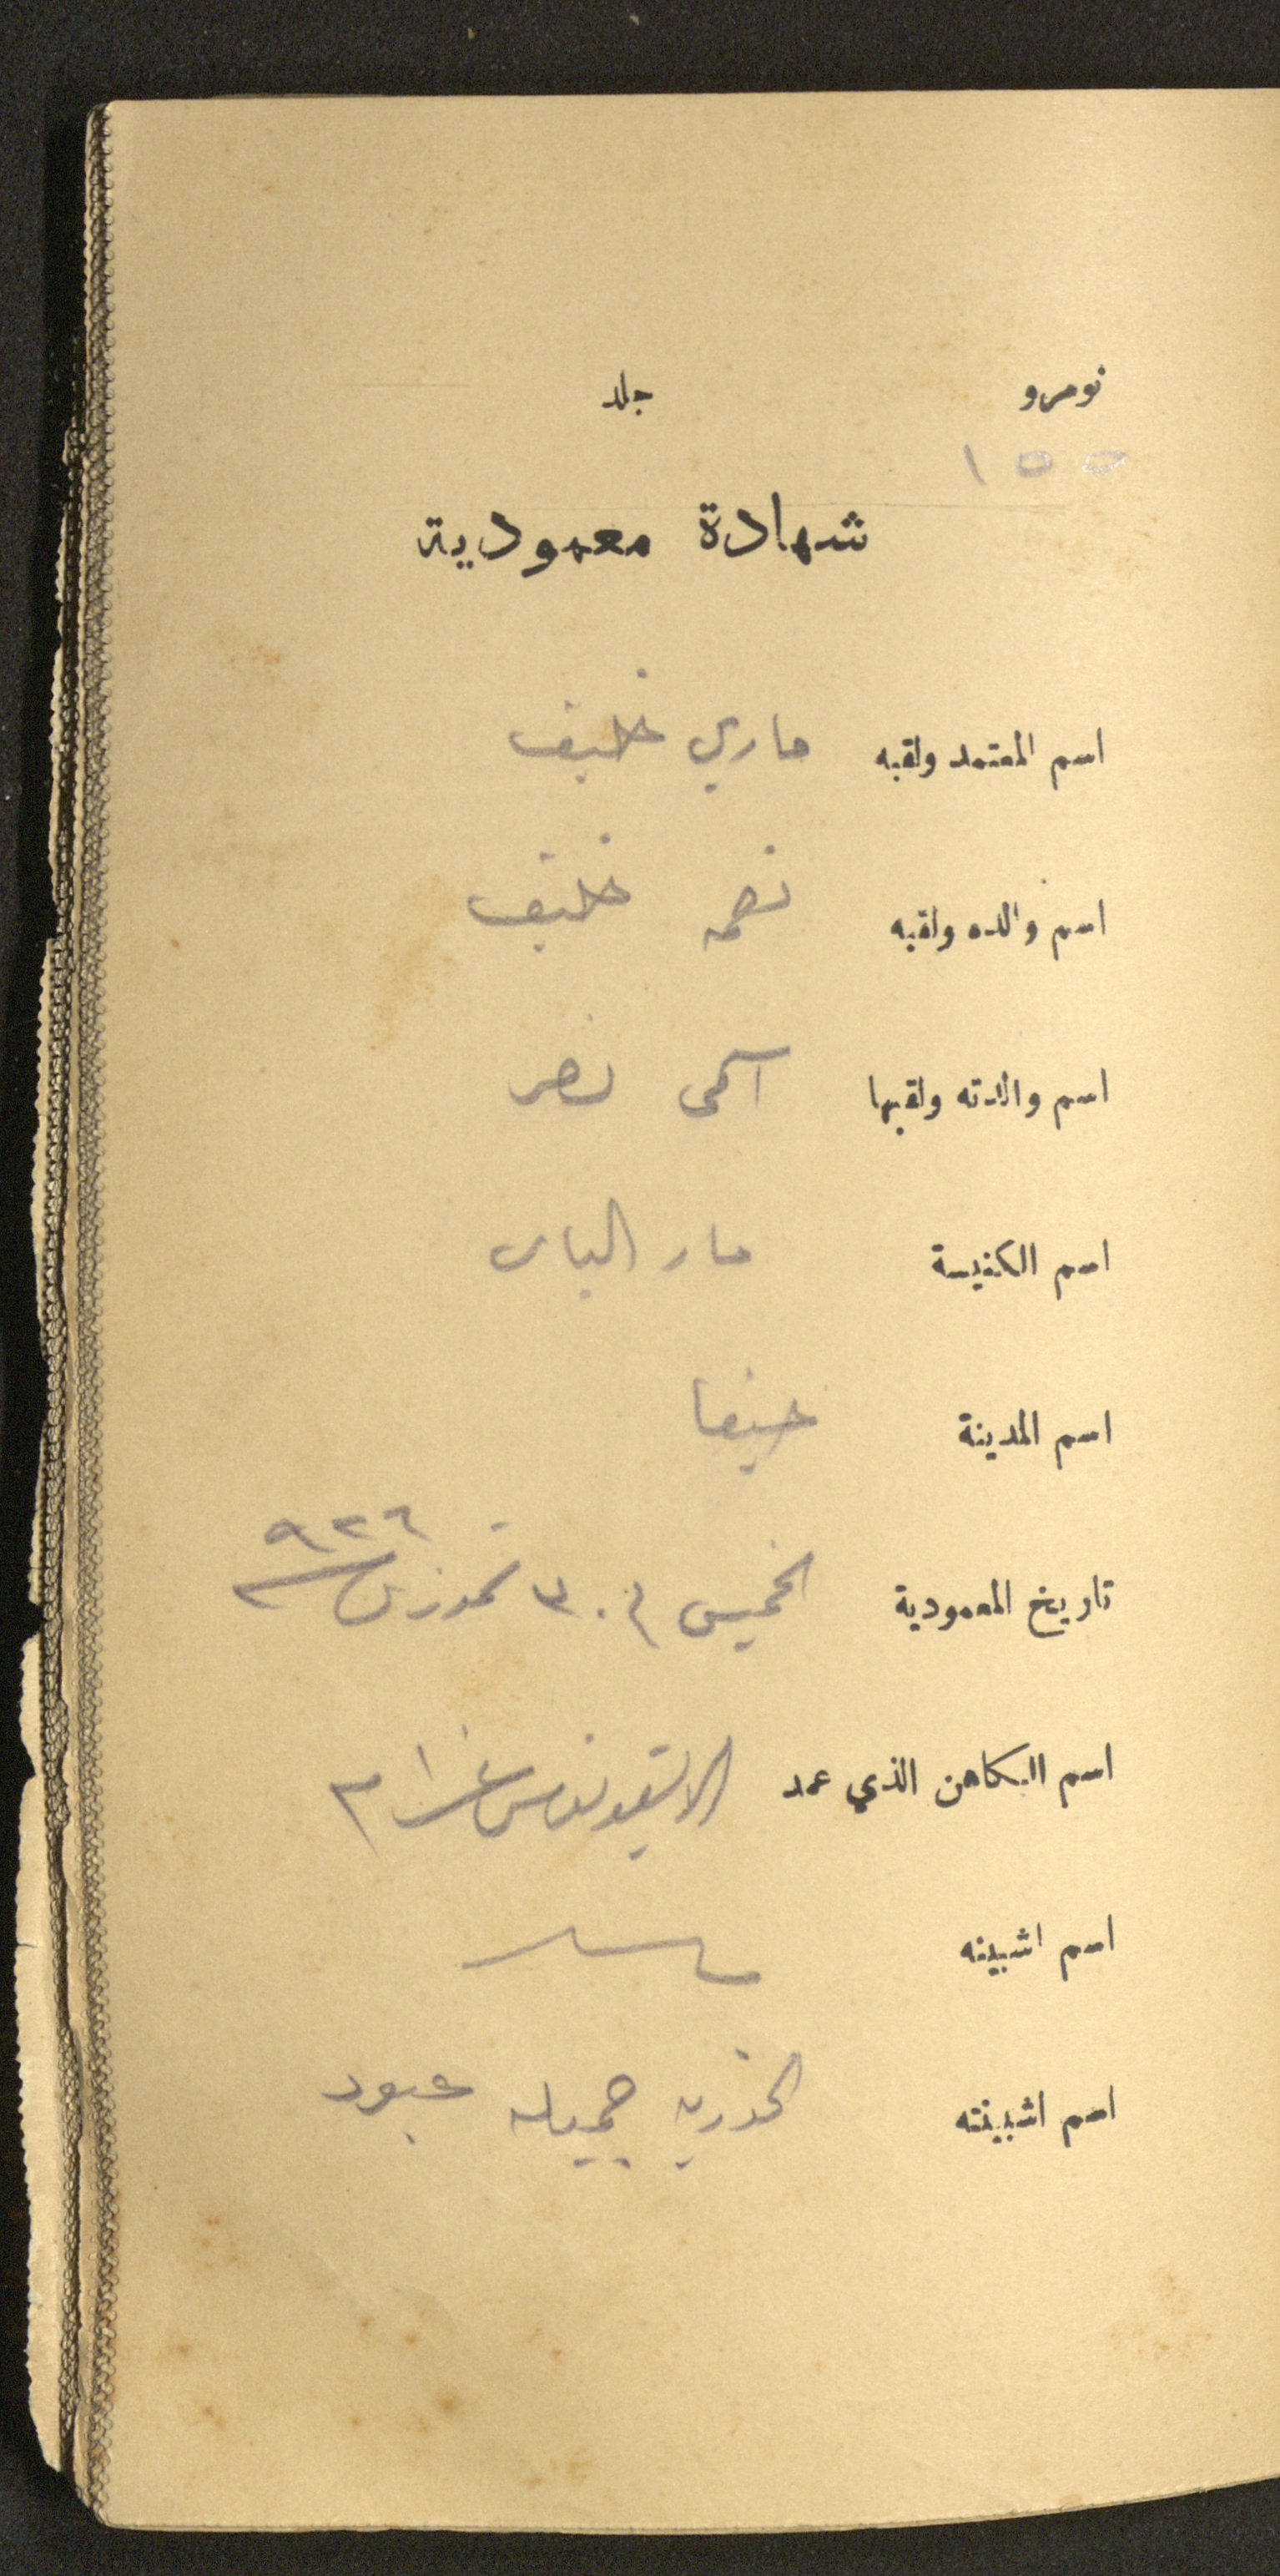 نومرو جلد
١٥٥
شهادة معمودية
اسم المعتمد ولقبه ماري خليف
اسم والده ولقبه نعمه خليف
اسم والدته ولقبها نصر
اسم الكنيسة مار الياس
اسم المدينة حيفا
تاريخ المعمودية الخميس في ٣٠ تموز سنة ٩٢٦
اسم الكاهن الذي عمد
اسم اشبينه
اسم اشبينته الخوريه جميله عبود